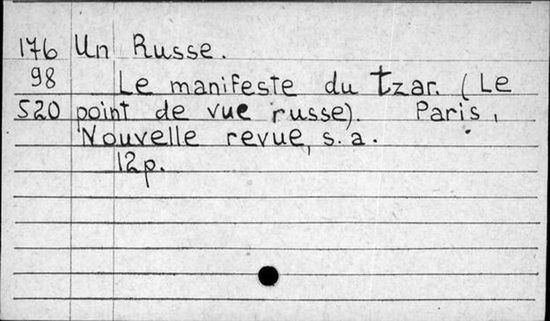 176 Un Russe.
98 Le manifeste du tzar. (Le
520 point de vue russe). Paris,
Nouvelle revue, s. a.
12p.